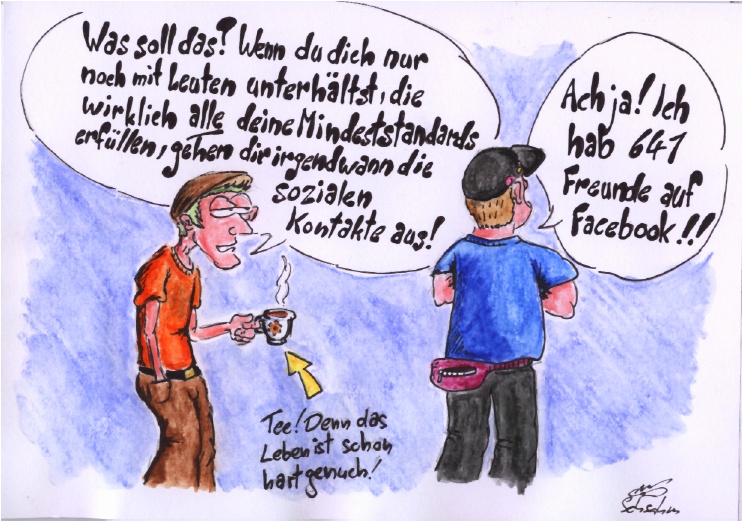 Was soll das? Wenn du dich nur
noch mit Leuten unterhältst, die
wirklich alle deine Mindeststandards
erfüllen, gehen dir irgendwann die
sozialen
Kontakte aus!
Ach ja! Ich
hab 641
Freunde auf
Facebook!!!
Tee! Denn das
Leben ist schon
hart genuch!